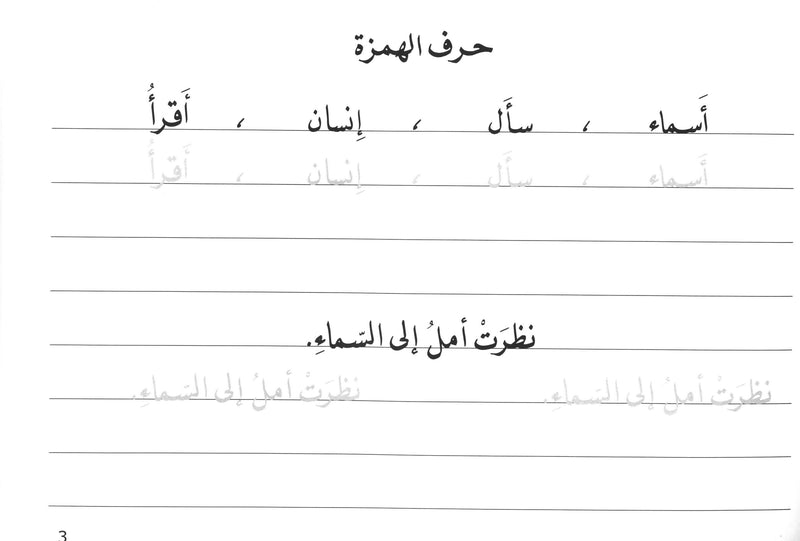 حرف الهمزة
أَسماء ، سأَل ، إِنسان ، أَقرأُ
أَسماء ، سأَل ، إِنسان ، أَقرأُ
نظرَتْ أملُ إلى السّماءِ.
نظرَتْ أملُ إلى السّماءِ. نظرَتْ أملُ إلى السّماءِ.
3